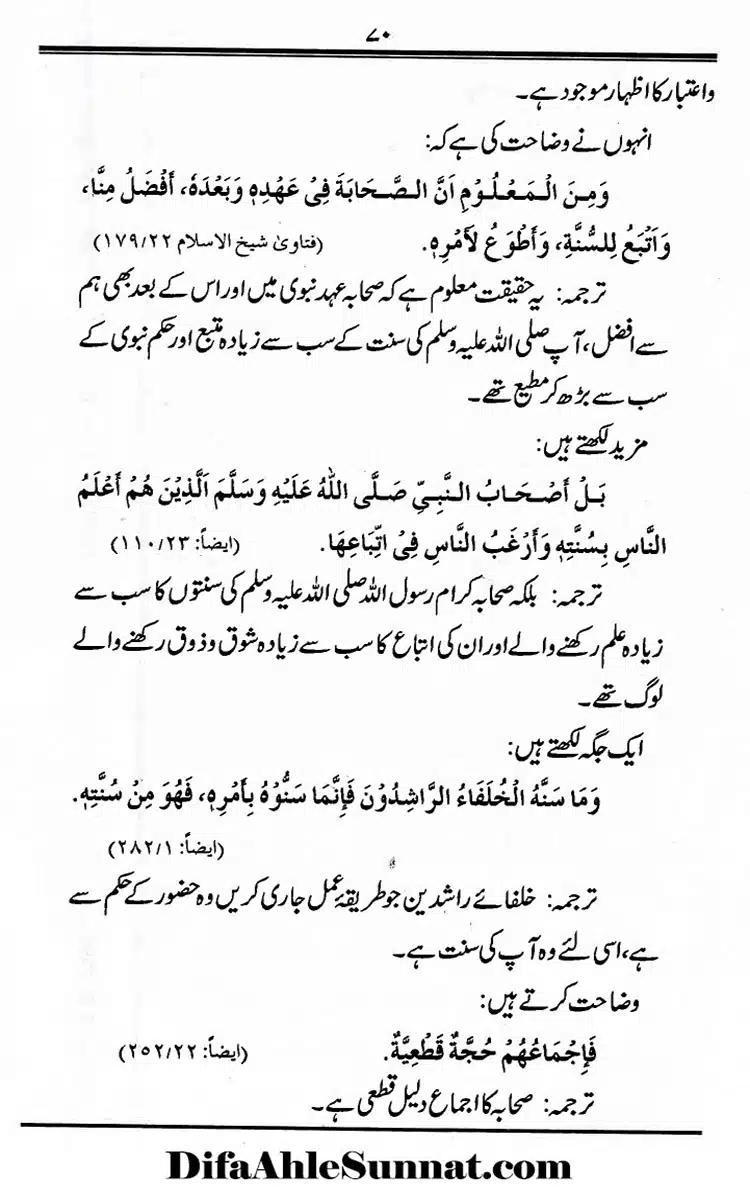 ۷۰
واعتبار کا اظہار موجود ہے۔
انہوں نے وضاحت کی ہے کہ:
وَمِنَ الْمَعْلُومِ اَنَّ الصَّحَابَةَ فِیْ عَهْدِهٖ وَبَعْدَهٗ، أَفْضَلُ مِنَّا،
وَاَتْبَعُ لِلسُّنَّةِ، وَأَطْوَعُ لأَمْرِهٖ. (فتاویٰ شیخ الاسلام ۱۷۹/۲۲)
ترجمہ: یہ حقیقت معلوم ہے کہ صحابہ عہد نبوی میں اور اس کے بعد بھی ہم
سے افضل، آپ صلی اللہ علیہ وسلم کی سنت کے سب سے زیادہ متبع اور حکم نبوی کے
سب سے بڑھ کر مطیع تھے۔
مزید لکھتے ہیں:
بَلْ أَصْحَابُ النَّبِيِّ صَلَّى اللّٰهُ عَلَيْهِ وَسَلَّمَ اَلَّذِيْنَ هُمْ أَعْلَمُ
النَّاسِ بِسُنَّتِهٖ وَأَرْغَبُ النَّاسِ فِیْ اتِّبَاعِهَا. (ایضاً: ۱۱۰/۲۳)
ترجمہ: بلکہ صحابہ کرام رسول اللہ صلی اللہ علیہ وسلم کی سنتوں کا سب سے
زیادہ علم رکھنے والے اور ان کی اتباع کا سب سے زیادہ شوق وذوق رکھنے والے
لوگ تھے۔
ایک جگہ لکھتے ہیں:
وَمَا سَنَّهُ الْخُلَفَاءُ الرَّاشِدُوْنَ فَإِنَّمَا سَنُّوْهُ بِأَمْرِهٖ، فَهُوَ مِنْ سُنَّتِهٖ.
(ایضاً: ۲۸۲/۱)
ترجمہ: خلفائے راشدین جو طریقۂ عمل جاری کریں وہ حضور کے حکم سے
ہے، اسی لئے وہ آپ کی سنت ہے۔
وضاحت کرتے ہیں:
فَإِجْمَاعُهُمْ حُجَّةٌ قَطْعِيَّةٌ. (ایضاً: ۲۵۲/۲۲)
ترجمہ: صحابہ کا اجماع دلیل قطعی ہے۔
DifaAhleSunnat.com